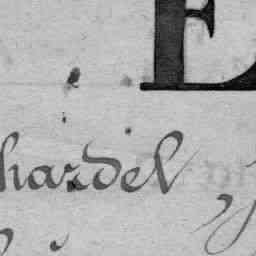 E
hardel,